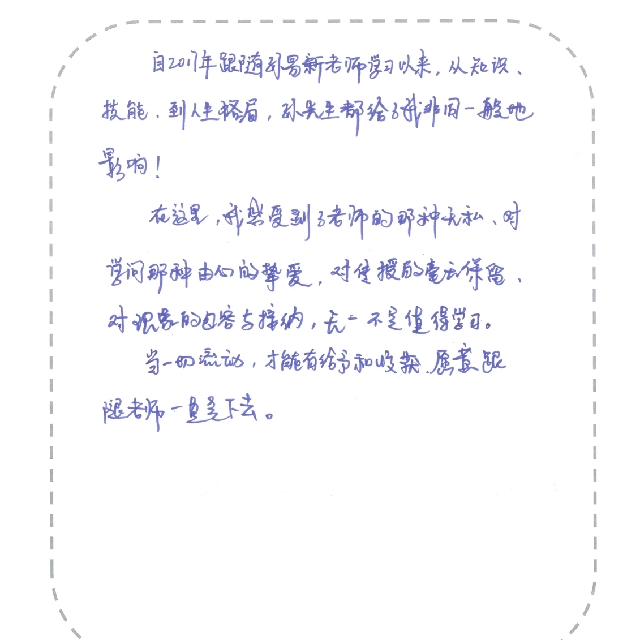 自2017年跟随孙易新老师学习以来，从知识、
技能、到人生格局，孙先生都给了我非同一般地
影响！
在这里，我感受到了老师的那种无私、对
学问那种由心的挚爱，对传授的毫无保留、
对跟家的包容与接纳，无一不是值得学习。
当一切流动，才能有给予和收获，愿意跟
随老师一直走下去。